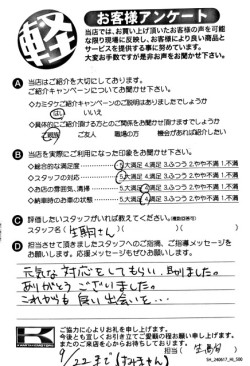 軽
お客様アンケート
当店では、お買い上げ頂いたお客様の声を可能
な限り現場に反映し、お客様により良い商品と
サービスを提供する事に努めています。
大変お手数ですが是非お声をお聞かせ下さい。
A 当店はご紹介を大切にしております。
ご紹介キャンペーンについてお聞かせ下さい。
◇カミタケご紹介キャンペーンのご説明はありましたでしょうか
はい いいえ
◇具体的にご紹介頂ける方とのご関係をお聞かせ頂けますでしょうか
ご親族 ご友人 職場の方 機会があれば紹介したい
B 当店を実際にご利用になった印象をお聞かせ下さい。
◇総合的な満足度 5.大満足 4.満足 3.ふつう 2.やや不満 1.不満
◇スタッフの対応 5.大満足 4.満足 3.ふつう 2.やや不満 1.不満
◇お店の雰囲気、清掃 5.大満足 4.満足 3.ふつう 2.やや不満 1.不満
◇納車時のお車の状態 5.大満足 4.満足 3.ふつう 2.やや不満 1.不満
C 評価したいスタッフがいれば教えてください。(複数回答可)
スタッフ名( 生駒さん )
D 担当させて頂きましたスタッフへのご指摘、ご指導メッセージを
お願いします。応援メッセージもぜひお願いします。
元気な対応をしてもらい、助けました。
ありがとうございました。
これからも良い出会いを…
K
ご協力に心よりお礼を申し上げます。
今後とも宜しくお引き立てご愛顧の程お願い申し上げます。
またのご来店を心からお待ちしております。
担当( 生駒 )
9/22まで
SA_240617_45_500